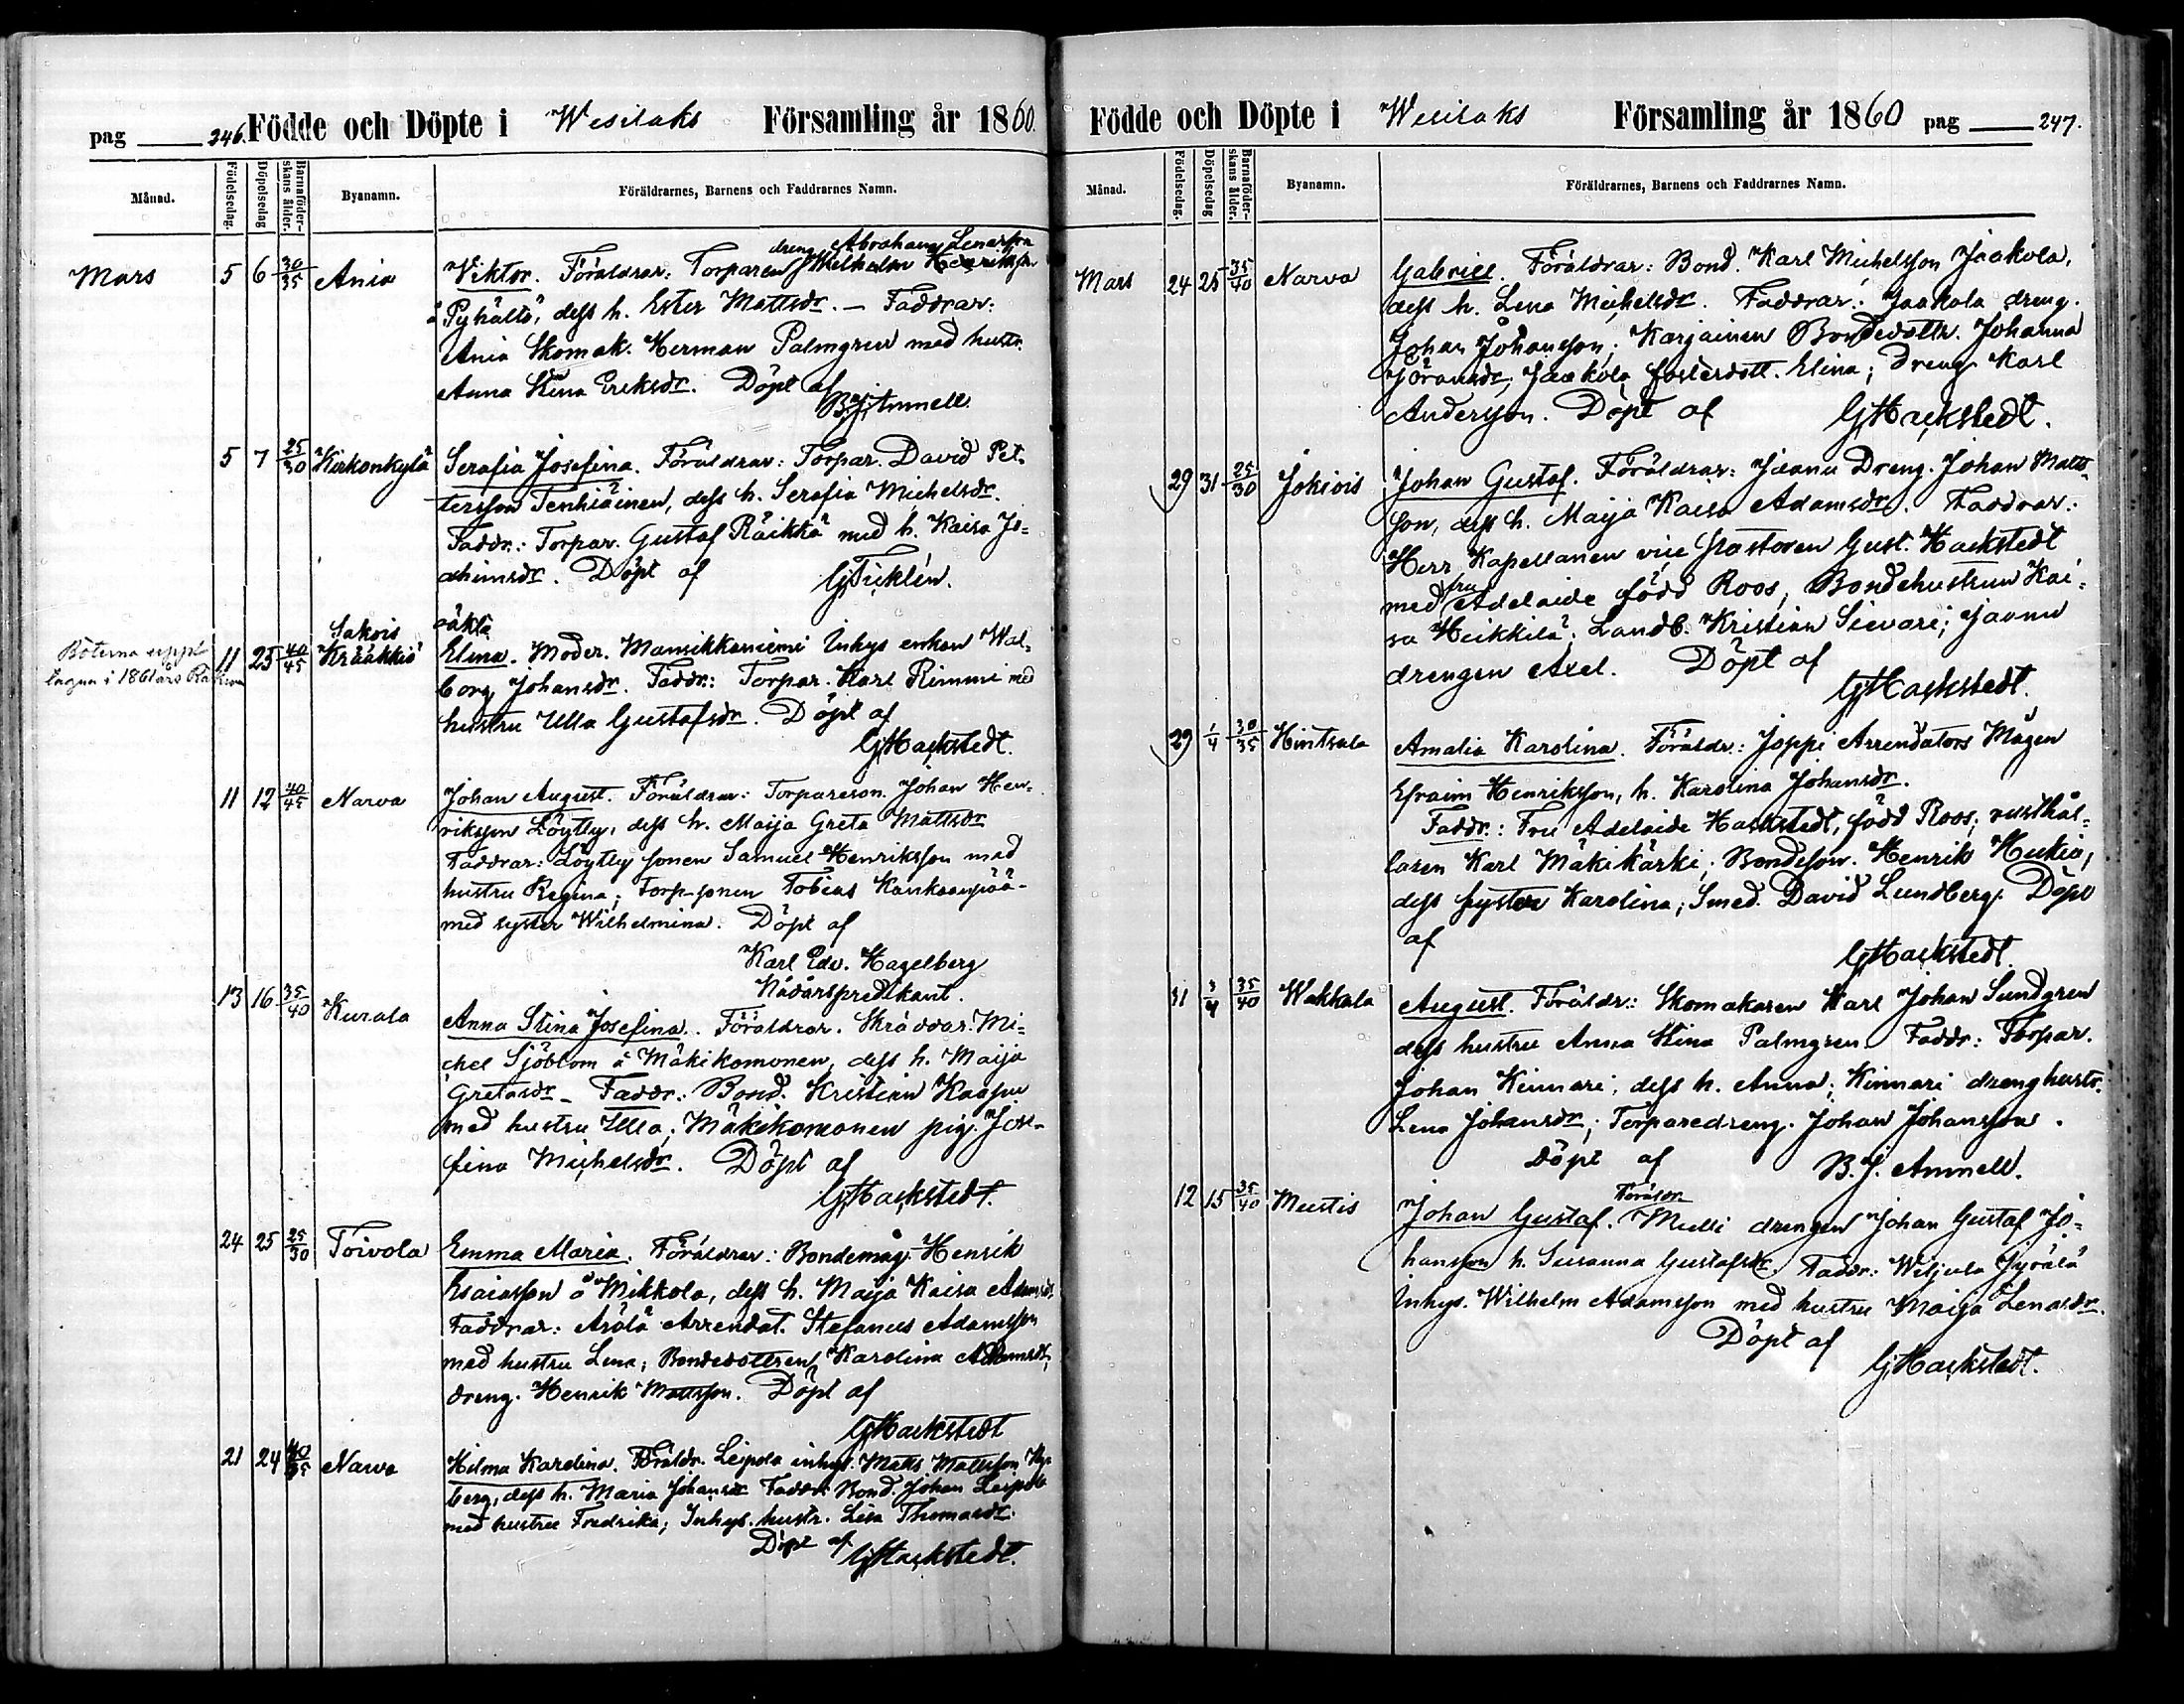 pag 246. Födde och Döpte i Wesilaks Församling år 1860.
Månad. Födelsedag. Döpelsedag Barnaföder-
skans ålder. Byanamn. Föräldrarnes, Barnens och Faddrarnes Namn.
dreng Abraham Lenasson
Mars 5 6 30/35 Ania Viktor. Föräldrar: Torparen Wilhelm Henriksson
å Pyhältö, dess h. Ester Mattsdr. – Faddrar:
Ania Skomak. Herman Palmgren med hustr.
Anna Stina Eriksdr. Döpt af
B. J. Ammell.
5 7 25/30 Kirkonkylä Serafia Josefina. Föräldrar: Torpar. David Pet-
tersson Tenhiäinen, dess h. Serafia Michelsdr.
Faddr.: Torpar. Gustaf Räikkä med h. Kaisa Jo-
akimsdr. Döpt af G. Ticklén.
Sakois oäkta
Böterna upp-
tagna i 1861 års Räkun
11 25 40/45 Krääkkiö Elina. Moder. Mansikkaniemi Inhys enkan Wal-
borg Johansdr. Faddr.: Torpar. Karl Rimmi med
hustru Ulla Gustafsdr. Döpt af
G. Hackstedt.
11 12 40/45 Narva Johan August. Föräldrar: Torpareson. Johan Hen-
riksson Löytty, dess h. Maija Greta Mattsdr
Faddrar: Löytty sonen Samuel Henriksson med
hustru Regina; Torp-sonen Tobias Kankaanpää
med syster Wilhelmina. Döpt af
Karl Edv. Hagelberg
Nådårspredikant.
13 16 35/40 Kurala Anna Stina Josefina. Föräldrar. Skräddar. Mi-
chel Sjöblom å Mäkikomonen, dess h. Maija
Gretasdr – Faddr.: Bond. Kristian Kaapu
med hustru Ulla; Mäkikomonen pig. Jose-
fina Michelsdr. Döpt af
G. Hackstedt.
24 25 25/30 Toivola Emma Maria. Föräldrar: Bondemåg. Henrik
Esaiasson å Mikkola, dess h. Maija Kaisa Adamsdr.
Faddrar: Arölä Arrendat. Stefanus Adamsson
med hustru Lena; Bondedottren Karolina Adamsdr,
dreng. Henrik Mattsson. Döpt af
G. Hackstedt
21 24 40/35 Narva Hilma Karolina. Föräldr. Leipola inhys. Matts Mattsson
berg, dess h. Maria Johansdr Faddr. Bond. Johan Leipola
med hustru Fredrika; Inhys. hustr. Lisa Thomasdr.
Döpt af G. Hackstedt.
Födde och Döpte i Wesilaks Församling år 1860 pag 247.
Månad. Födelsedag. Döpelsedag Barnaföder-
skans ålder. Byanamn. Föräldrarnes, Barnens och Faddrarnes Namn.
Mars 24 25 35/40 Narva Gabriel. Föräldrar: Bond. Karl Michelsson Jaakola,
dess h. Lena Michelsdr. Faddrar: Jaakola dreng.
Johan Johansson; Karjainen Bondedottr. Johanna
Jöransdr, Jaakola fosterdott. Elina; Dreng Karl
Andersson. Döpt af G. Hackstedt.
29 31 25/30 Jokiois Johan Gustaf. Föräldrar: Jaanu Dreng. Johan Matts-
son, dess h. Maija Kaisa Adamsdr. Faddrar:
Herr Kapellanen vice Pastoren Gust. Hackstedt
med fru Adelaide född Roos, Bondehustrun Kai-
sa Heikkilä; Landb. Kristian Sievari; Jaanu
drengen Axel. Döpt af
G. Hackstedt.
29 1/4 30/35 Hintsala Amalia Karolina. Föräldr: Joppi Arrendators Mågen
Efraim Henriksson, h. Karolina Johansdr.
Faddr.: Fru Adelaide Hackstedt, född Roos; rusthål-
laren Karl Mäkikärki; Bondeson. Henrik Hukio,
dess syster Karolina; Smed. David Lundberg. Döpt
af
G. Hackstedt.
31 3/4 35/40 Wakkala August. Föräldr: Skomakaren Karl Johan Sundgren
dess hustru Anna Stina Palmgren. Faddr: Torpar.
Johan Kinnari, dess h. Anna; Kinnari drenghustr.
Lena Johansdr; Torparedreng. Johan Johansson.
Döpt af B. J. Ammell.
Föräldr
12 15 35/40 Mustis Johan Gustaf. Mulli drengen Johan Gustaf Jo-
hansson h. Susanna Gustafsdr. Faddr: Weljula Jyrälä
Inhys. Wilhelm Adamsson med hustru Maija Lenasdr.
Döpt af
G. Hackstedt.